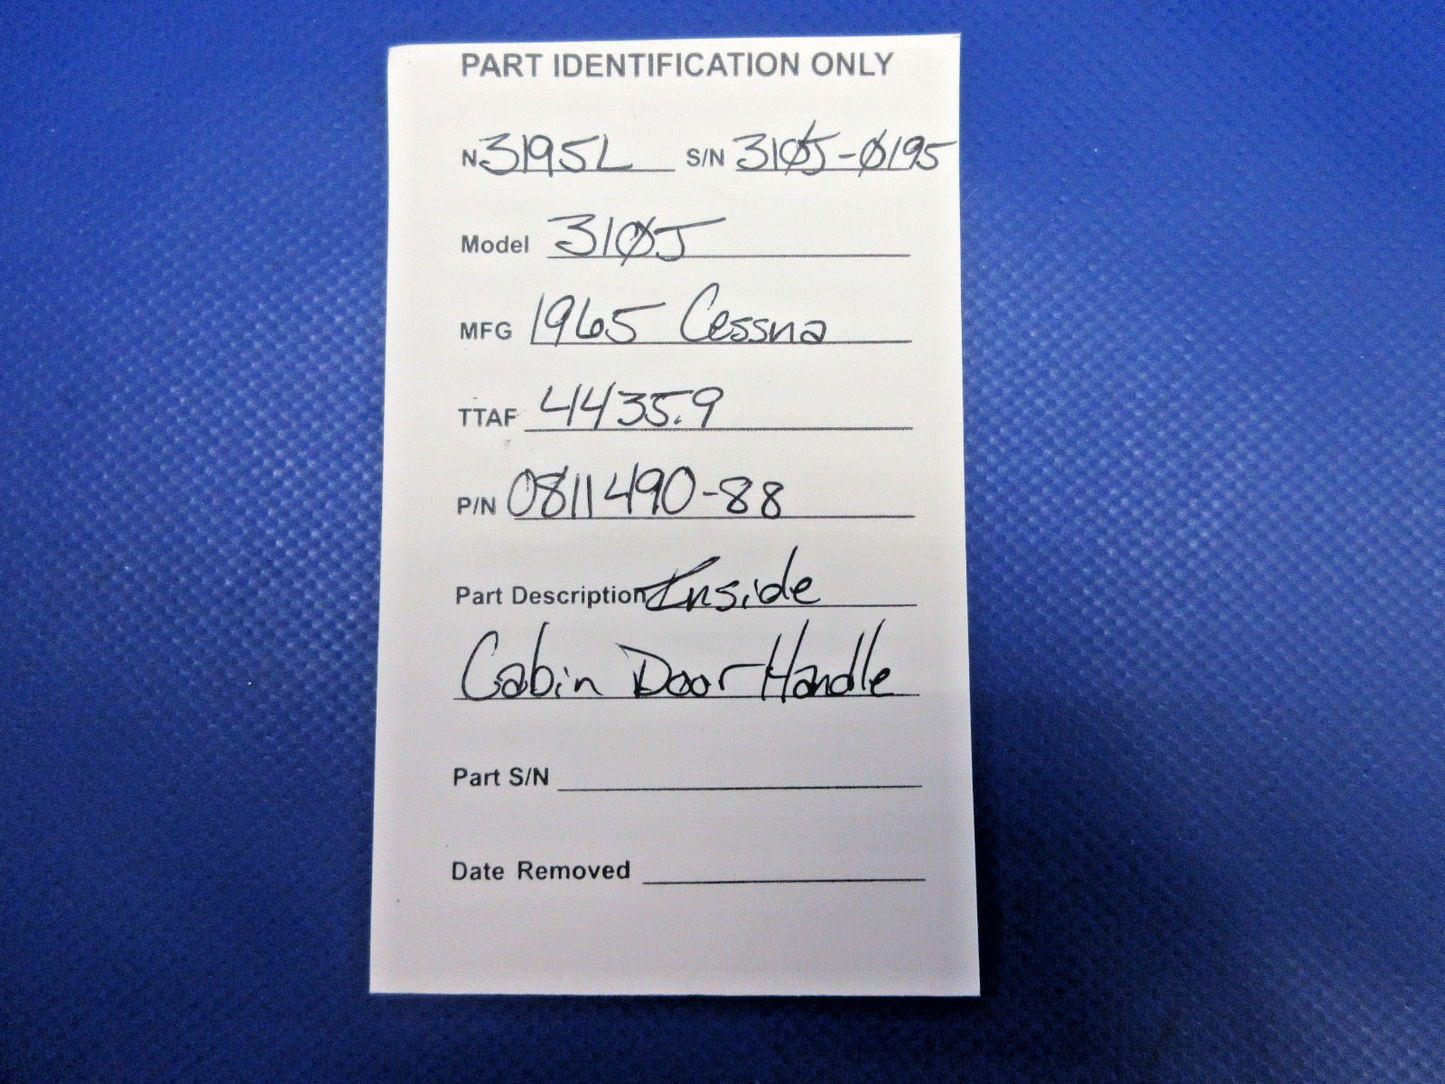 PART IDENTIFICATION ONLY
N 3195L S/N 310J-0195
Model 310J
MFG 1965 Cessna
TTAF 4435.9
P/N 0811490-88
Part Description Inside
Cabin Door Handle
Part S/N
Date Removed